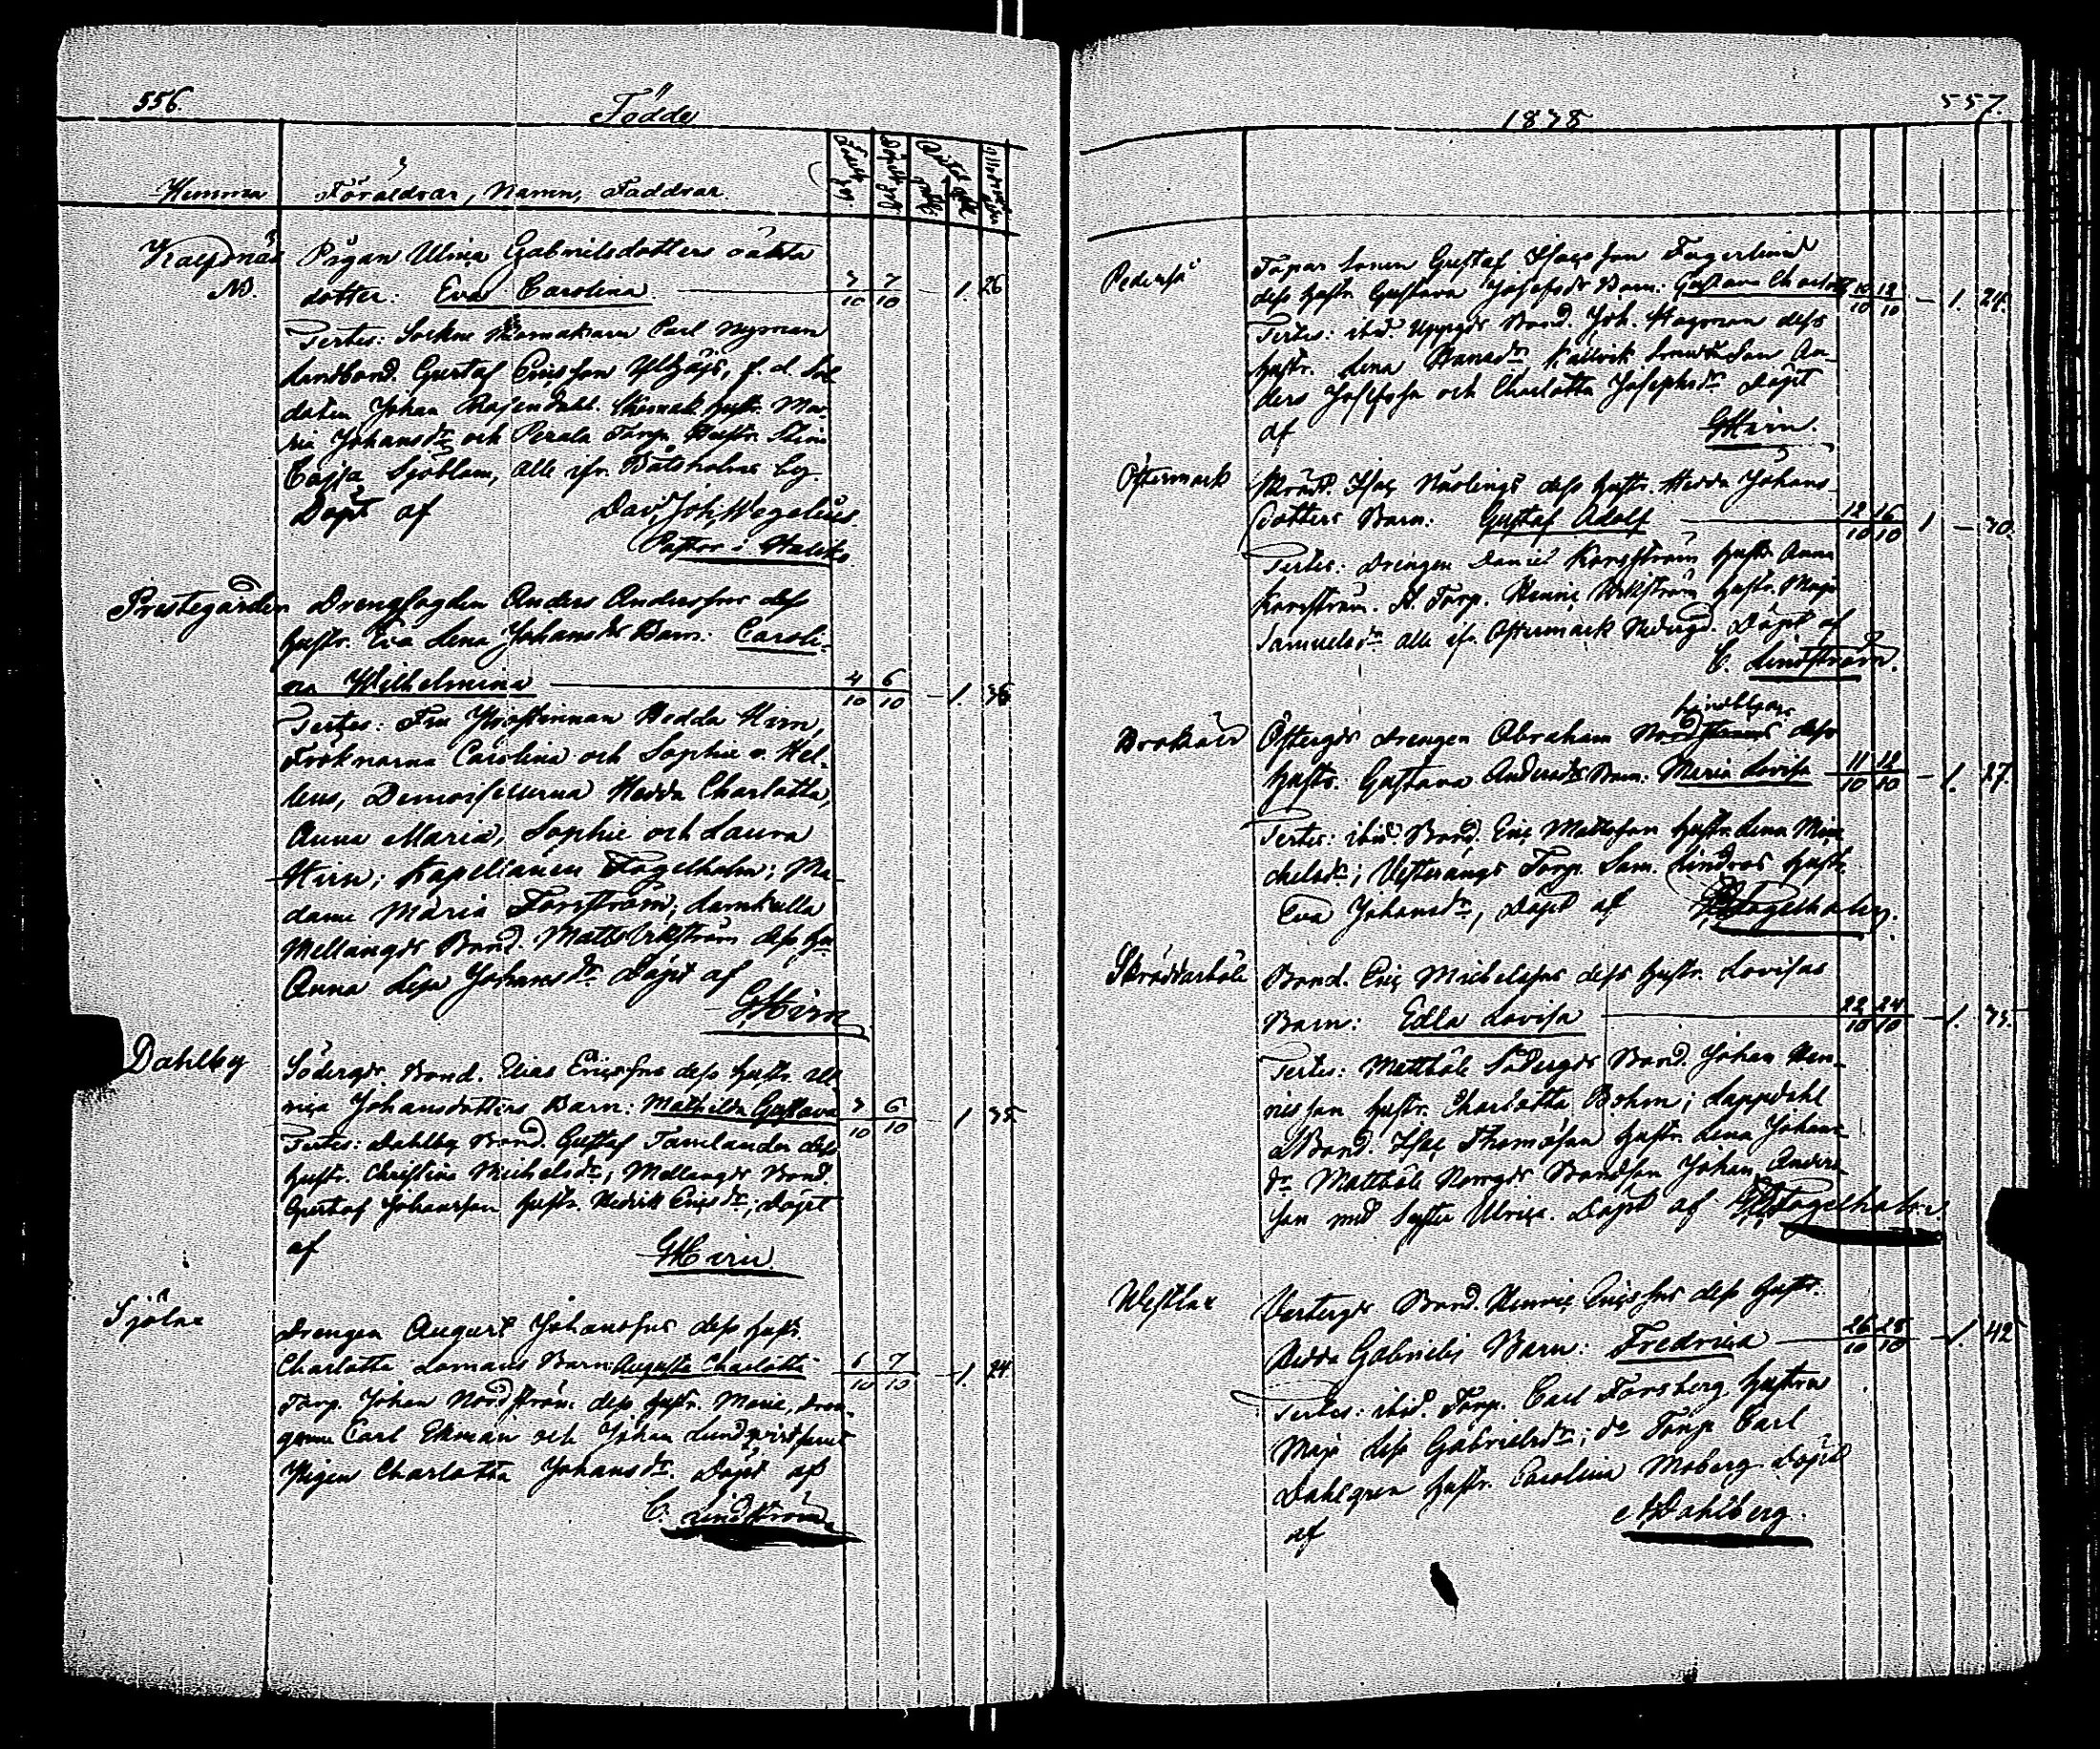 556.
Födde
Hemman Föräldrar, Namn, Faddrar.
Pigan Ulrica Gabrielsdotters oäkta
NB. dotter: Eva Carolina 3/10 7/10 1. 26
Testes: Sockne Skomakaren Carl Nyman
Landbond. Gustaf Ericsson f. d. Sol-
daten Johan Rosendahl. Skomak. hustr. Ma-
ria Johansdr och Perala Torp. Hustr. Stina
Cajsa Sjöblom, alle ifr. Båtsholms by.
Döpt af Dav. Joh. Wegelius
Pastor i Halikko
Prestegården Drengfogden Anders Anderssons dess
hustr. Eva Lena Johansdrs Barn: Caroli-
na Wilhelmina 4/10 6/10 1. 36
Testes: Fru Prostinnan Hedda Hirn,
Fröknarna Carolina och Sophie v. Hel-
lens, Demoisellerna Hedda Charlotta,
Anna Maria, Sophie och Laura
Hirn; Kapellanen Fogelholm; Ma-
dame Maria Forsström; Lamkulla
Mellangds Bond. Matts Vikström dess hu
Anna Lisa Johansdr Döpt af
GHirn
Dahlby Södergds Bond. Elias Ericssons dess hustr. Ul-
rica Johansdotters Barn: Mathilda Gustava 3/10 6/10 1 35.
Testes: Dahlby Bond. Gustaf Tamelander dess
hustr. Christina Michelsdr; Mellangds Bond.
Gustaf Johansson hustr. Hedvik Ericsdr; Döpt
af GHirn
Sjölax Drengen August Johanssons dess hustr.
Charlotta Lomans Barn: Augusta Charlotta 6/10 7/10 1. 24.
Torp. Johan Nordström dess hustr. Maria, dren-
garne Carl Ekman och Johan Lundqvist samt
Pigen Charlotta Johansdr. Döpt af
C. Lindström
557.
1838
Pederså Torpar Sonen Gustaf Isacsson Fagerlund
dess hustr. Gustava Josefsdrs Barn: Gustava Charlotta 10/10 12/10 1. 24.
Testes: ibid. Uppgds Bond. Joh. Hagman dess
hustr. Lena Hansdr Källvik Son An-
ders Josefsson och Charlotta Josephsdr Döpt
af GHirn.
Östermark Skrädd. Isac Närlings dess hustr. Hedda Johans-
dotters Barn: Gustaf Adolf 12/10 16/10 1 30.
Testes: Drengen Daniel Karlström hustr. Anna
Karlström. St. Torp. Henric Wikström hustr. Maja
Samuelsdr alle ifr. Östermark Nedergd. Döpt af
C. Lindström.
Lindbloms
Östergds drengen Abraham Nordströms dess
hustr. Gustava Andersdrs Barn: Maria Lovisa 11/10 12/10 1. 27.
Testes: ibid. Bond. Eric Mattsson hustr. Lena Mi-
chelsdr; Vesterängs Torp. Sam. Lindros hustr.
Eva Johansdr, Döpt af Fogelholm.
Skräddarböle Bond. Eric Michelssons dess hustr. Lovisas
Barn: Edla Lovisa 22/10 24/10 1. 35.
Testes: Mattböle Södergds Bond. Johan Hen-
ricsson hustr. Charlotta Bohm; Lappdahl
LBond. Isac Thomasson hustr. Lena Johans-
dr Mattböle Norrgds Bondson Johan Anders-
son med Syster Ulrica. Döpt af Fogelholm
Westlax Vestergds Bond. Henric Ericssons dess hustr.
Hedda Gabriels Barn: Fredrica 26/10 28/10 1. 42
Testes: ibid. Torp. Carl Forsberg hustrn
Maja Lisa Gabrielsdr; do Torp Carl
Dahlgren hustr. Carolina Moberg Döpt
af Dahlberg.